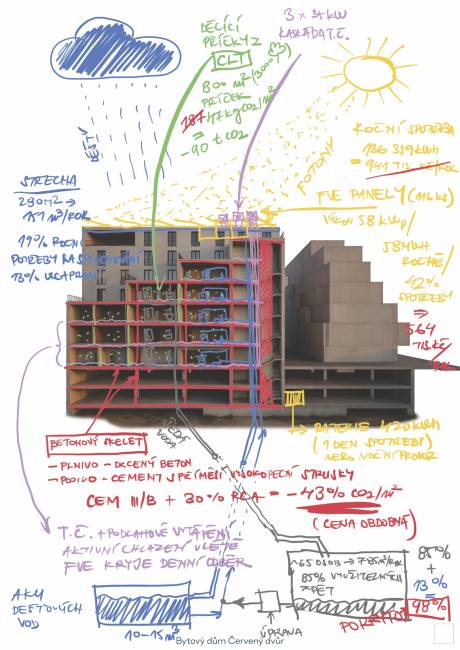 DĚLÍCÍ
PŘÍČKY Z
CLT
800 m² (300m³)
PŘÍČEK
187 47 kgCO2/m²
=
-90 t CO2
3 x 35 kW
KASKÁDA T.Č.
DEŠTY
FOTONY
ROČNÍ SPOTŘEBA
136 359 kWh
= 941 TIS. KČ/ROK
FVE PANELY (116 KS)
VÝKON 58 kWp/
58 MWH
ROČNĚ/
42%
SPOTŘEBY
=>
564
TIS.KČ/
ROK
STŘECHA
290 m² →
151 m³/ROK
19% ROČNÍ
POTŘEBY NA SPLACHOVÁNÍ
13%
ŠEDÁ
VODA
BATERIE 420 kWh
(1 DEN SPOTŘEBY)
NEBO NOČNÍ PROVOZ
BETONOVÝ SKELET
- PLNIVO - DRCENÝ BETON
- POJIVO - CEMENT S PŘÍMĚSÍ VYSOKOPECNÍ STRUSKY
CEM III/B + 30% RCA = -43% CO2/m²
(CENA OBDOBNÁ)
T.Č. + PODLAHOVÉ VYTÁPĚNÍ
AKTIVNÍ CHLAZENÍ V LÉTĚ
FVE KRYJE DENNÍ ODBĚR
AKU
DEŠŤOVÝCH
VOD
10-15 m³
ÚPRAVA
65 OSOB →
85% VYUŽITELNÝCH
ZPĚT
POKRYTO
85%
+
13%
=
98%
Bytový dům Červený dvůr